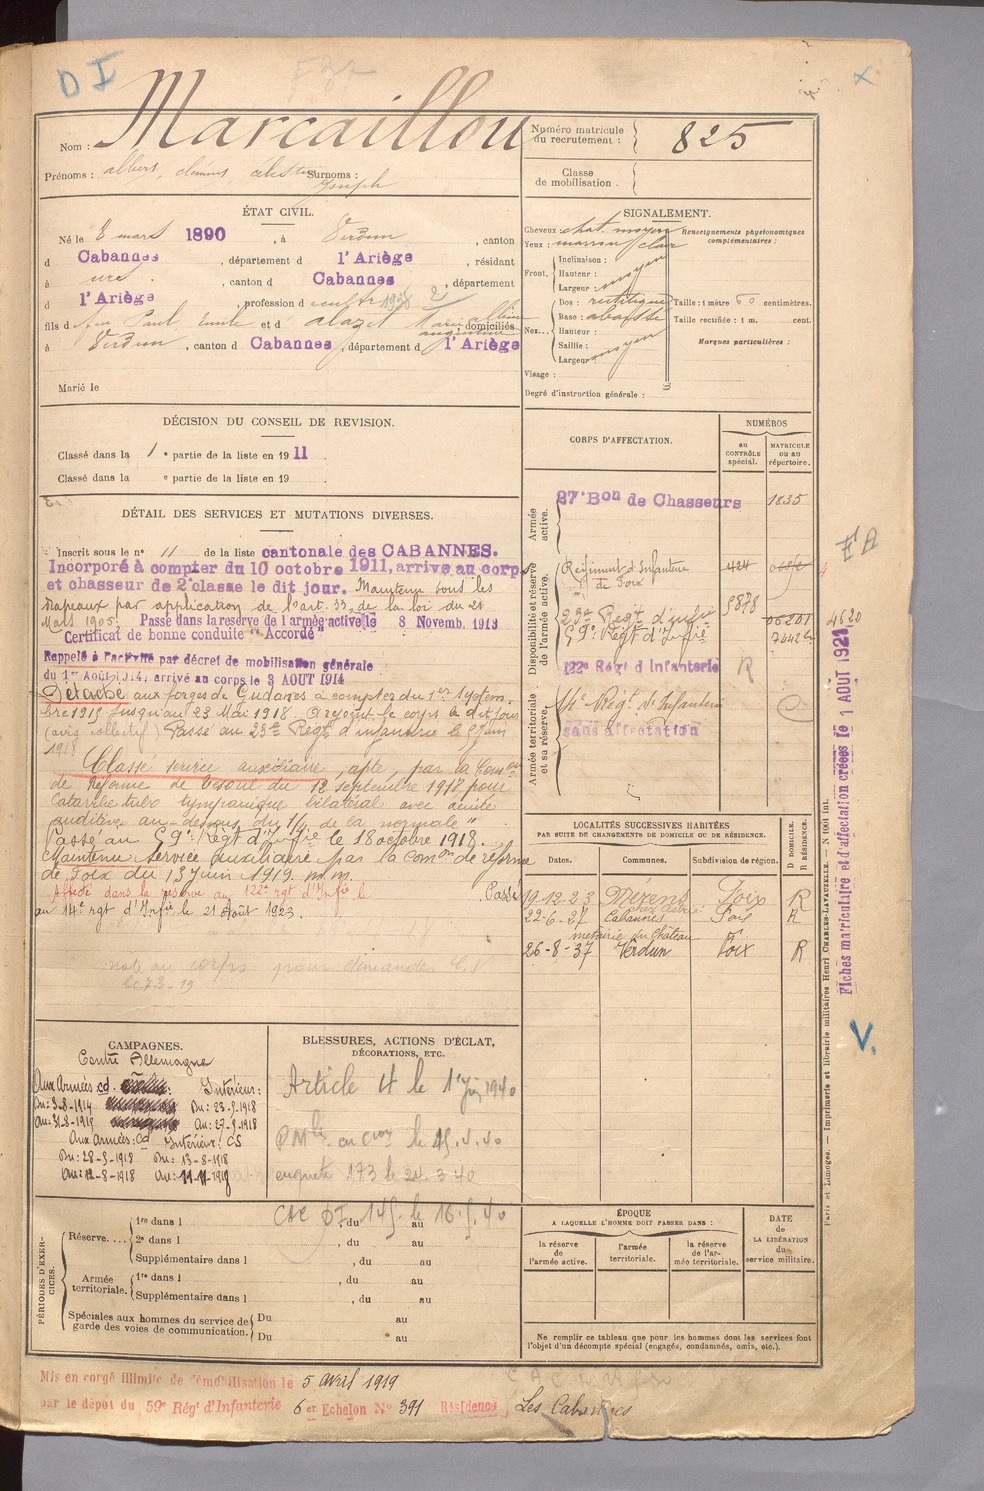 D I
Nom : Marcaillou
Numéro matricule du recrutement : 825
Prénoms : albert, clément, célestin Surnoms :
Joseph
Classe de mobilisation .
ÉTAT CIVIL.
Né le 8 mars 1890 , à Verdun , canton
d Cabannes , département d l'Ariège , résidant
à , canton d Cabannes , département
d l'Ariège , profession d
fils d feu Paul, Emile et d' alazet Marie albine augustine domiciliés
à Verdun , canton d Cabannes , département d l'Ariège
Marié le
SIGNALEMENT.
Cheveux : chat. moyen
Yeux : marron clair
Renseignements physionomiques complémentaires :
Front. Inclinaison :
Hauteur : moyen
Largeur :
Nez... Dos : rectiligne
Base : abaissé
Hauteur :
Saillie : moyen
Largeur :
Taille : 1 mètre 60 centimètres.
Taille rectifiée : 1 m. cent.
Marques particulières :
Visage :
Degré d'instruction générale :
DÉCISION DU CONSEIL DE REVISION.
Classé dans la 1 e partie de la liste en 19 11 .
Classé dans la e partie de la liste en 19 .
DÉTAIL DES SERVICES ET MUTATIONS DIVERSES.
Inscrit sous le n° 11 de la liste cantonale des CABANNES.
Incorporé à compter du 10 octobre 1911, arrive au corps
et chasseur de 2e classe le dit jour. Maintenu sous les
drapeaux par application de l'art. 33 de la loi du 21
Mars 1905. Passé dans la reserve de l'armée active le 8 Novemb. 1913
Certificat de bonne conduite "Accordé"
Rappelé à l'activité par décret de mobilisation générale
du 1er Août 1914, arrivé au corps le 3 AOUT 1914
Détaché aux forges de Gudanes à compter du 1er Septem-
bre 1915 jusqu'au 23 Mai 1918. A rejoint le corps le dit jour
(avis collectif) Passé au 23e Régt d'infanterie le Juin
1918
Classé service auxiliaire, apte, par la Comon
de Réforme de Vesoul du 12 septembre 1918 pour
Catarrhe tubo tympanique bilatéral avec acuité
auditive au-dessous du 1/4 de la normale"
Passé au 59e Régt d'Infie le 18 octobre 1918.
Maintenu Service auxiliaire par la Comon de réforme
de Foix du 13 Juin 1919. m.m.
Affecté dans la réserve au 122e rgt d'Infie le Passé
au 14e rgt d'Infie le 21 Août 1923.
note au corps pour demandes
CORPS D'AFFECTATION.
NUMÉROS
au CONTRÔLE spécial.
MATRICULE ou au répertoire.
Armée active.
27e Bon de Chasseurs 1835
Disponibilité et réserve de l'armée active.
Régiment d'Infanterie de Foix 424
23me Regt d'infie 5878 06201
59e Régt d'Infie
122e Régt d Infanterie R
Armée territoriale et sa réserve.
14e Rég. d'Infanterie
sans affectation
EA
4620
Fiches matriculaire et d'affectation créées le 1 AOUT 1921
LOCALITÉS SUCCESSIVES HABITÉES
PAR SUITE DE CHANGEMENTS DE DOMICILE OU DE RÉSIDENCE.
Dates. Communes. Subdivision de région. D DOMICILE. R RÉSIDENCE.
19.12.23 Mérens Foix R
22-6-27 Cabannes Foix R
métairie du Château
26-8-37 Verdun Foix R
CAMPAGNES.
Contre Allemagne
Aux Armées cd. Intérieur :
Du : 3-8-1914 Du : 23-5-1918
Au : 31-8-1915 Au : 27-5-1918
Aux Armées : cd Intérieur : CS
Du : 28-5-1918 Du : 13-8-1918
Au : 12-8-1918 Au : 11-11-1918
BLESSURES, ACTIONS D'ÉCLAT, DÉCORATIONS, ETC.
Article 4 le 1er 1940
enquete 173 le 24.3.40
PÉRIODES D'EXERCICES.
Réserve....
1re dans l , du au
2e dans l , du au
Supplémentaire dans l , du au
Armée territoriale.
1re dans l , du au
Supplémentaire dans l , du au
Spéciales aux hommes du service de garde des voies de communication.
Du au
Du au
ÉPOQUE
A LAQUELLE L'HOMME DOIT PASSER DANS :
la réserve de l'armée active.
l'armée territoriale.
la réserve de l'armée territoriale.
DATE de LA LIBÉRATION du service militaire.
Ne remplir ce tableau que pour les hommes dont les services font
l'objet d'un décompte spécial (engagés, condamnés, omis, etc.).
Paris et Limoges. — Imprimerie et librairie militaires Henri CHARLES-LAVAUZELLE.
V.
Mis en congé illimité de démobilisation le 5 avril 1919
par le dépot du 59e Régt d'Infanterie 6 er Echelon N° 391 Résidence Les Cabannes